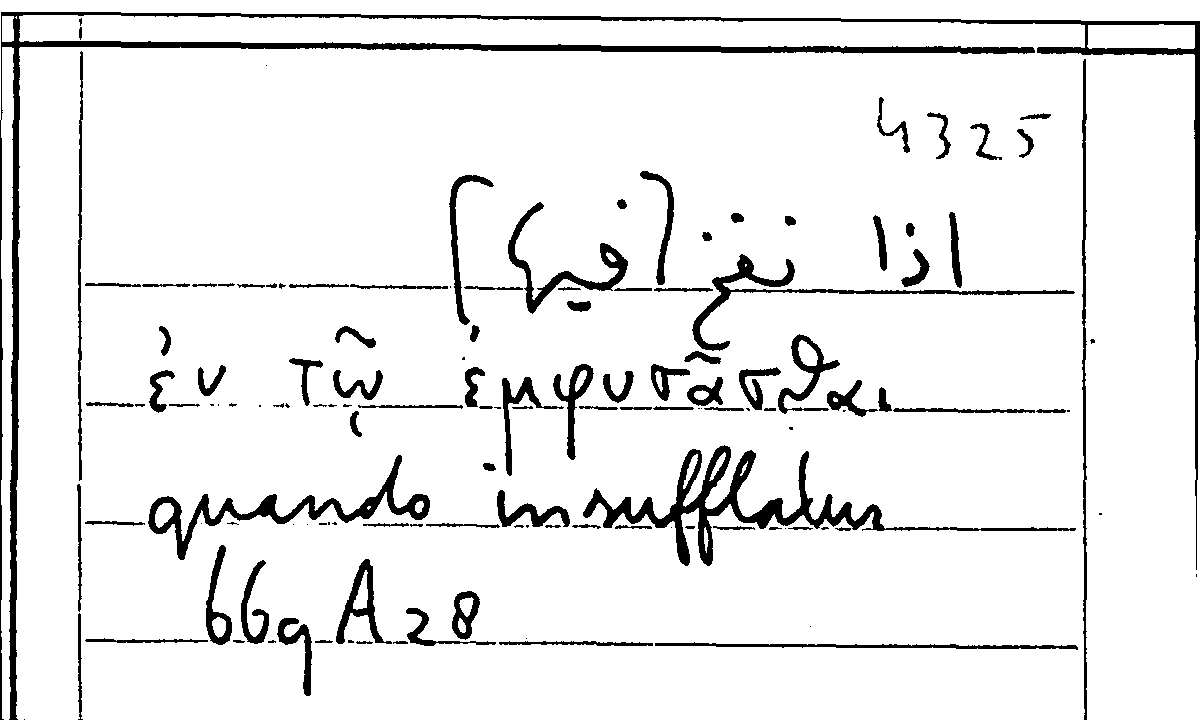 4325
اذا نفخ [فيها]
ἐν τῷ ἐμφυσᾶσθαι
quando insufflatur
669 A 28